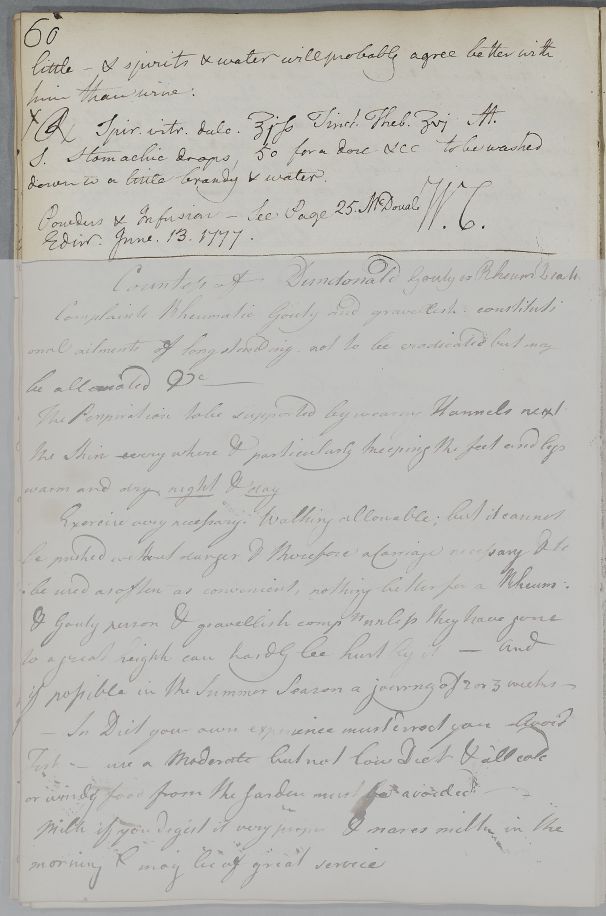 60
little - & spirits & water will probably agree better with
him than wine.
Spir. nitr. dulc. ʒjſs Tinct. Theb. ʒvj M.
S. Stomachic drops, 50 for a dose &cc to be washed
down wt a little brandy & water.
Powders & Infusion - See Page 25. McDoual W. C.
Edinr. June. 13. 1777.
Countess of Dundonald Gouty or Rheum
Complaints Rheumatic Gouty and gravellish: constituti
onal ailments of long standing. not to be eradicated but may
be &c
The Perspiration to be supported by wearing Flannels next
the Skin every where & particularly keeping the feet and legs
warm and dry night & day
Exercise very necessary. Walking allowable; but it cannot
be pushed without danger & therefore a Carriage necessary & to
be used as often as convenient, nothing better for a Rheum:
& Gouty person & gravellish compts unless they have gone
to a great height can hardly be hurt by it - and
if possible in the Summer Season a journey of 2 or 3 weeks -
- In Diet your own experience must direct you
- use a Moderate but not low Diet & all cold
or windy food from the Garden must be avoided
Milk if you digest it very proper & mares milk in the
morning & may be of great service